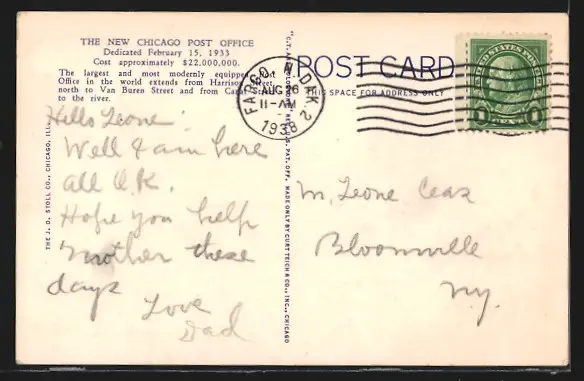 THE NEW CHICAGO POST OFFICE
Dedicated February 15, 1933
Cost approximately $22,000,000.
The largest and most modernly equipped Post
Office in the world extends from Harrison Street,
north to Van Buren Street and from Canal Street
to the river.
Hello Leone:
Well I am here
all O.K.
Hope you help
mother these
days
Love
Dad
THE J. O. STOLL CO., CHICAGO, ILL.
REG. U. S. PAT. OFF. MADE ONLY BY CURT TEICH & CO., INC., CHICAGO
POST CARD
THIS SPACE FOR ADDRESS ONLY
FARGO N. DAK. 2
AUG 26
11-AM
1938
UNITED STATES POSTAGE
1 CENT 1
M. Leone
Bloomville
N.y.